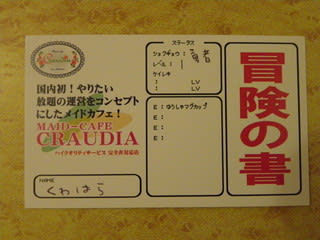 Craudia
国内初！やりたい
放題の運営をコンセプト
にしたメイドカフェ！
MAID-CAFE
CRAUDIA
ハイクオリティサービス 完全非対応店
NAME
くわはら
ステータス
ショクギョウ：
レベル：1
ケイレキ
： LV
： LV
E：ゆうしゃマグカップ
E：
E：
E：
冒険の書